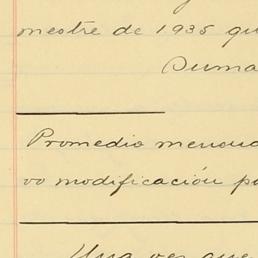 mestre de 1935 qu
Suma
Promedio mensua
vo modificación po
Una vez que